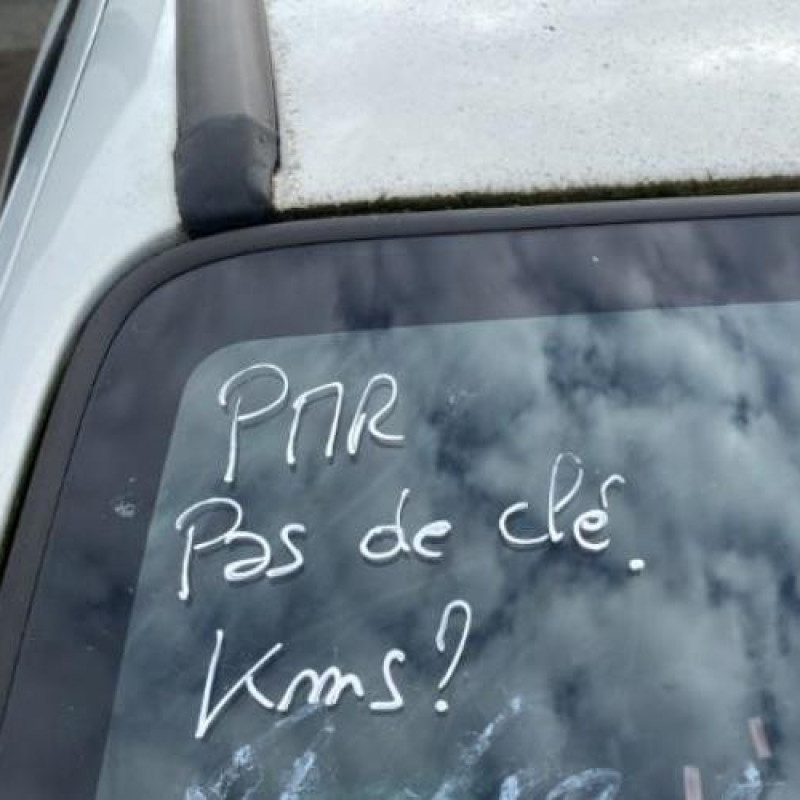 PMR
Pas de clé.
Kms?